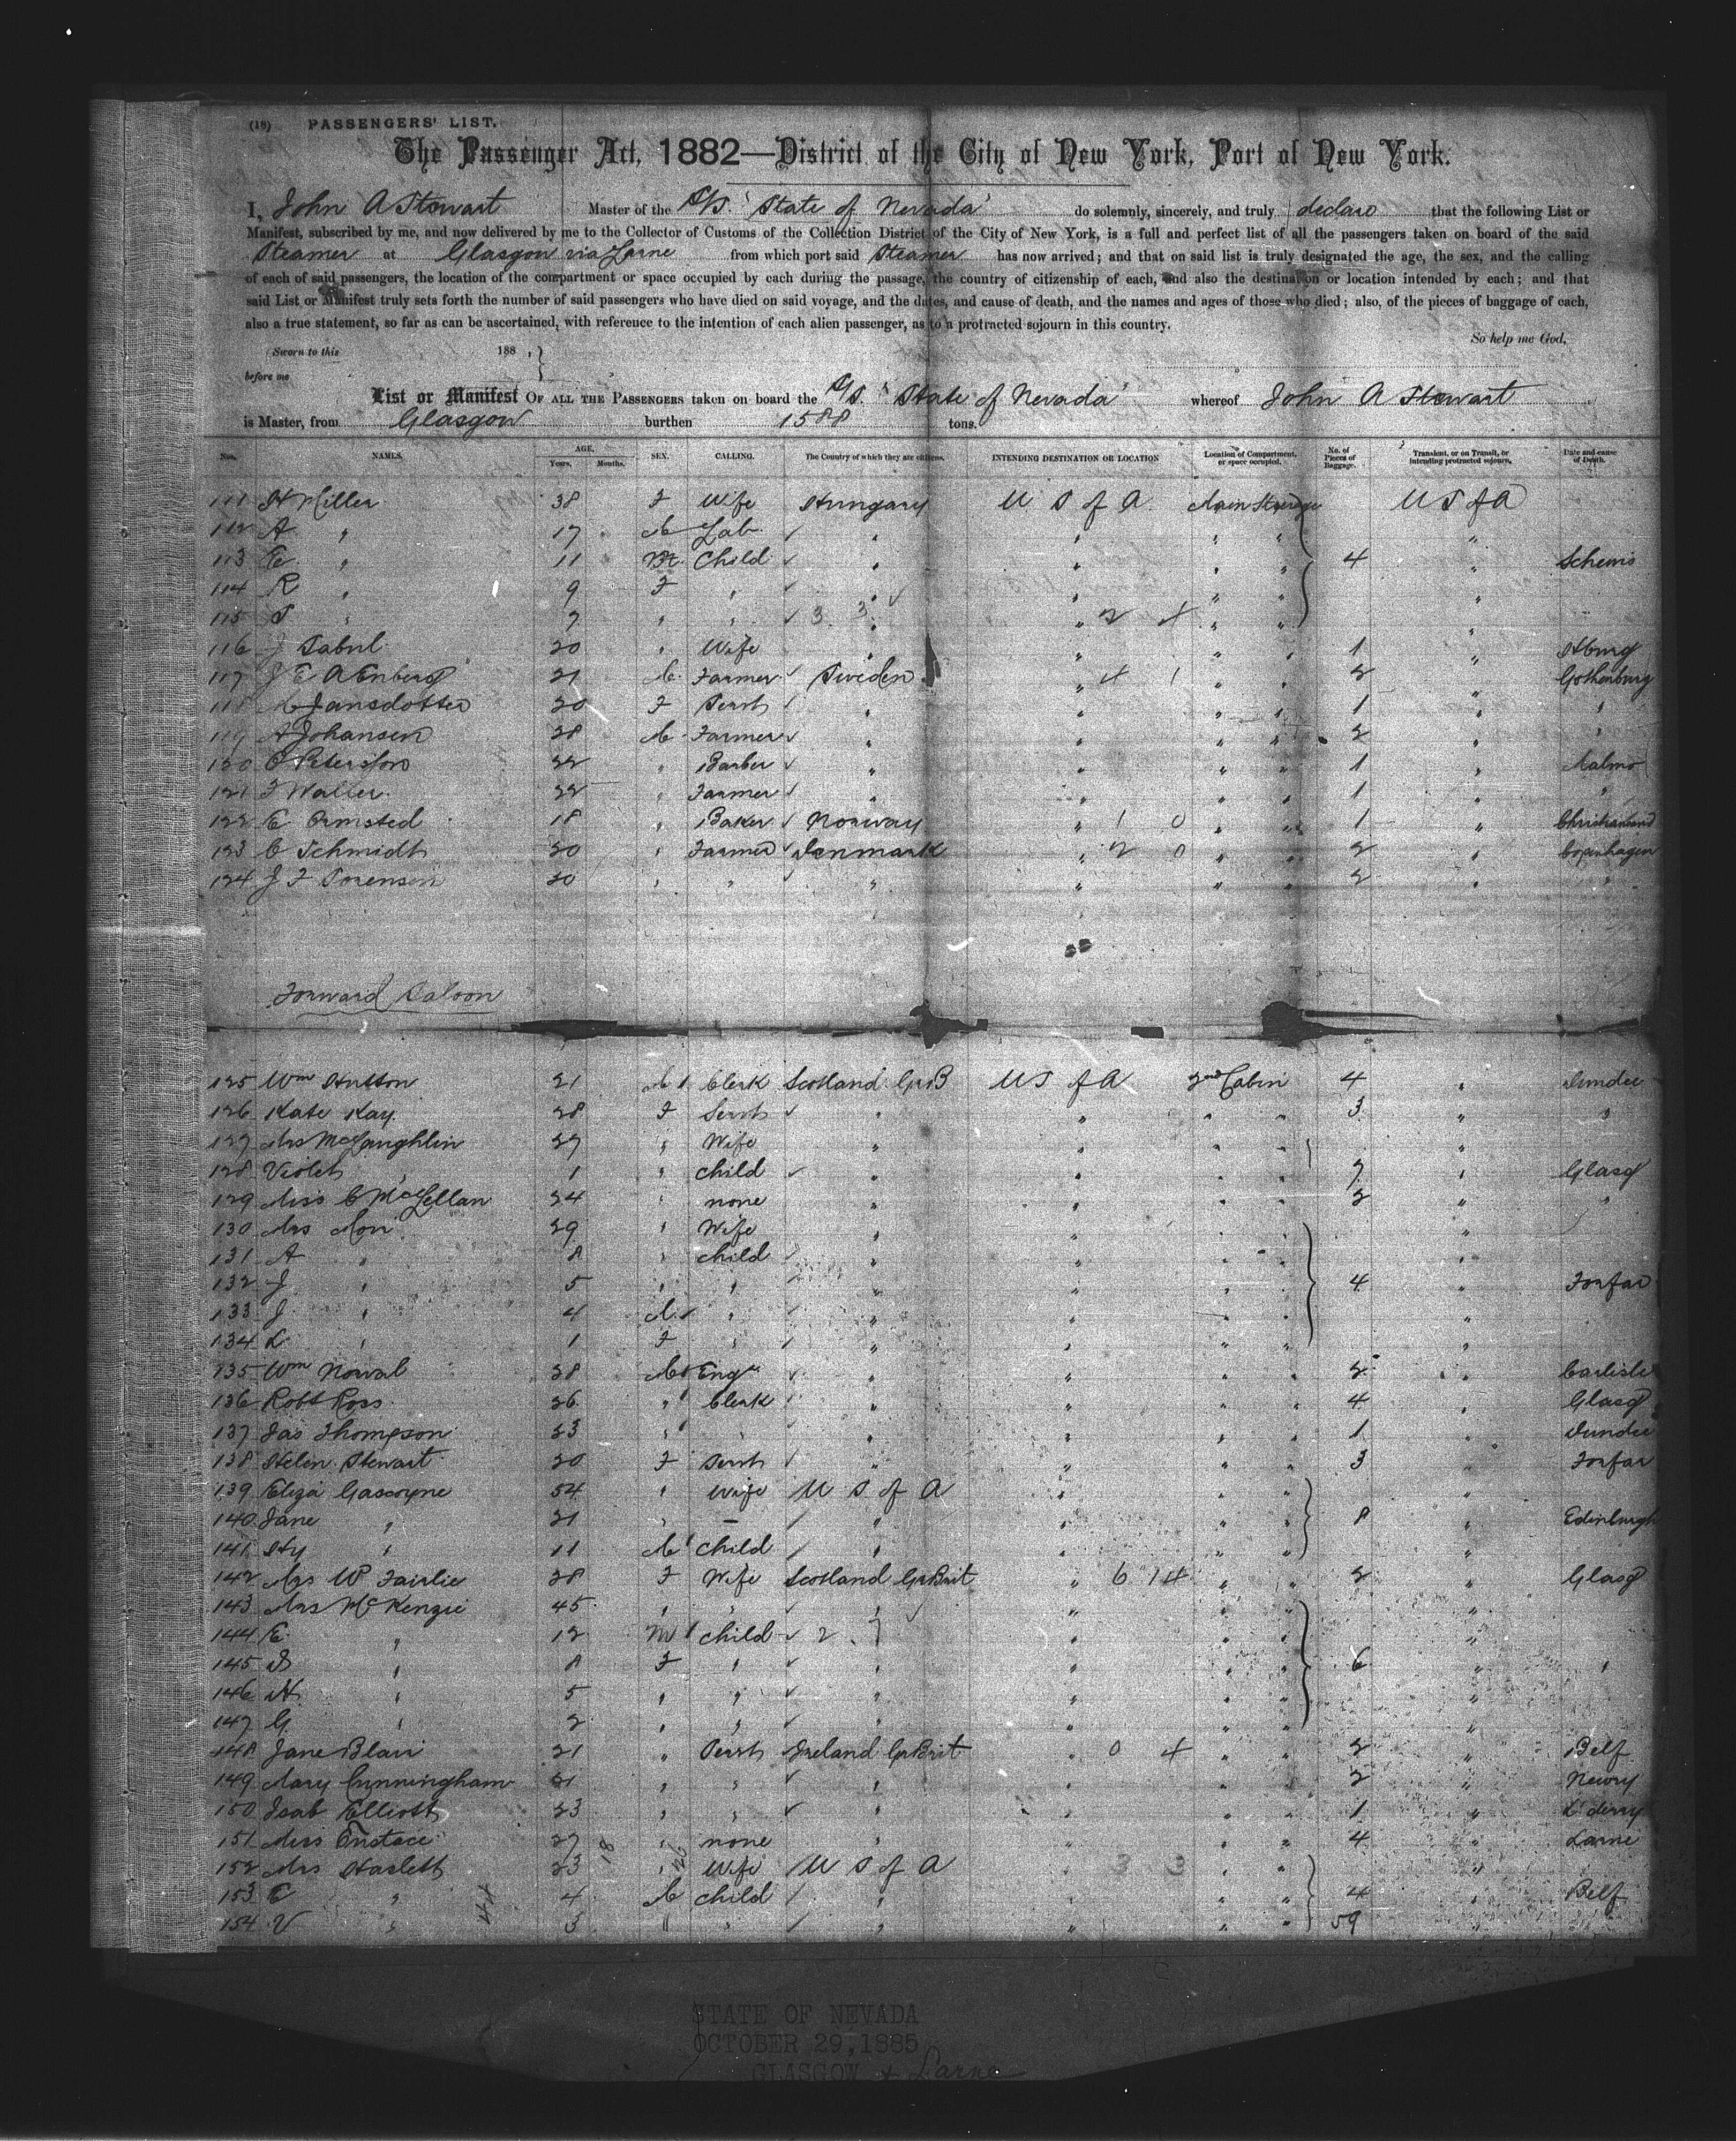 (18) PASSENGERS' LIST.
The Passenger Act, 1882—District of the City of New York, Port of New York.
I, John A Stewart Master of the S/S. "State of Nevada" do solemnly, sincerely, and truly declare that the following List or
Manifest, subscribed by me, and now delivered by me to the Collector of Customs of the Collection District of the City of New York, is a full and perfect list of all the passengers taken on board of the said
Steamer at Glasgow via Larne from which port said Steamer has now arrived; and that on said list is truly designated the age, the sex, and the calling
of each of said passengers, the location of the compartment or space occupied by each during the passage, the country of citizenship of each, and also the destination or location intended by each; and that
said List or Manifest truly sets forth the number of said passengers who have died on said voyage, and the dates, and cause of death, and the names and ages of those who died; also, of the pieces of baggage of each,
also a true statement, so far as can be ascertained, with reference to the intention of each alien passenger, as to a protracted sojourn in this country.
So help me God,
Sworn to this 188 ,
before me
List or Manifest OF ALL THE PASSENGERS taken on board the S/S. "State of Nevada" whereof John A Stewart
is Master, from Glasgow burthen 1588 tons.
Nos. NAMES. AGE. Years. Months. SEX. CALLING. The Country of which they are citizens. INTENDING DESTINATION OR LOCATION Location of Compartment, or space occupied. No. of Pieces of Baggage. Transient, or on Transit, or intending protracted sojourn. Date and cause of Death.
111 H Miller 38 F Wife Hungary U S of A Main Steerage U S of A
112 A " 17 M Lab. " " " " "
113 E " 11 M. Child " " " " 4 "
114 R " 9 F " " " " " "
115 S " 7 " " 3 3 " 2 4 " " "
116 J 20 " Wife " " " " 1 "
117 J E A Enberg 21 M. Farmer Sweden " 4 1 " " 2 " Gothenburg
118 M Jansdotter 20 F Servt " " " " 1 " "
119 A Johansen 28 M. Farmer " " " " 2 " "
120 P Peterson 22 " Barber " " " " 1 " Malmo
121 F Waller 22 " Farmer " " " " 1 " "
122 E Ormsted 18 " Baker Norway " 1 0 " " 1 " Christiansand
123 C Schmidt 20 " Farmer Denmark " 2 0 " " 2 " Copenhagen
124 J F Sorensen 20 " " " " " " 2 " "
Forward Saloon
125 Wm Hutton 21 M Clerk Scotland Gr B U S of A 2nd Cabin 4 " Dundee
126 Kate Kay. 28 F Servt " " " " 3 " "
127 Mrs McLaughlin 27 " Wife " " " "
128 Violet " 1 " child " " " " 7 " Glasg
129 Miss C McLellan 24 " none " " " " 2 " "
130 Mrs Mon 29 " Wife " " " " "
131 A " 8 " child " " " " "
132 J " 5 " " " " " " 4 " Forfar
133 J " 4 M. " " " " " "
134 L " 1 F " " " " " "
135 Wm Norval 28 M Engr " " " " 2 " Carlisle
136 Robt Ross 26 " Clerk " " " " 4 " Glasg
137 Jas Thompson 23 " " " " " " 1 " Dundee
138 Helen Stewart 20 F Servt " " " " 3 " Forfar
139 Eliza Gascoyne 54 " Wife U S of A " " " "
140 Jane " 21 " – " " " " 8 " Edinburgh
141 Hy " 11 M child " " " " "
142 Mrs W Fairlie 28 F Wife Scotland Gr Brit " 6 14 " " 2 " Glasg
143 Mrs McKenzie 45 " " " " " " "
144 E " 12 M child 2 7 " " " "
145 D " 8 F " " " " " 6 " "
146 H " 5 " " " " " " "
147 G " 2 " " " " " " "
148 Jane Blair 21 " Servt Ireland Gr Brit " 0 4 " " 2 " Belf
149 Mary Cunningham 21 " " " " " " 2 " Newry
150 Isab Elliott 23 " " " " " " 1 " L'derry
151 Miss Eustace 27 " none " " " " 4 " Larne
152 Mrs Haslett 23 18 " 26 Wife U S of A " 3 3 " " "
153 C " 4 M child " " " " 4 " Belf
154 V " 44 3 " " " " " " 59 "
STATE OF NEVADA
OCTOBER 29, 1885
GLASGOW + Larne